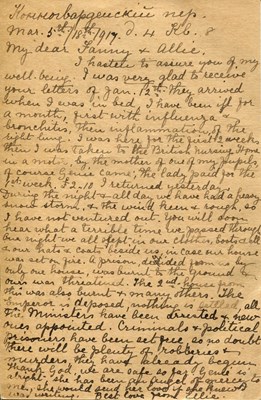 Конногвардейский пер.
Mar. 5th/18th/1917. д. 4 Кв. 8
My dear Fanny & Allie.
I hasten to assure you of my
well-being. I was very glad to receive
your letters of Jan. 12th. They arrived
when I was in bed, I have been ill for
a month, first with influenza &
bronchitis, then inflammation of the
right lung. I was here for the first 2 weeks
then I was taken to the British nursing Home
in a motor, by the mother of one of my pupils,
of course Genie came, the lady paid for the
1st week, £ 2-10. I returned yesterday.
During the night & all day, we have had a fearful
snow storm & the wind been rough, so
I have not ventured out. You will soon
hear what a terrible time we passed through
one night we all slept in our clothes, boots & all
& our hats & coats beside us, in case our house
was set on fire. A prison, divided from us by
only one house, was burnt to the ground &
ours was threatened. The 2nd house from
this was also burnt & many others. The
Emperor is deposed, nothing is settled, all
the Ministers have been arrested & new
ones appointed. Criminals & political
prisoners have been set free, so no doubt
there will be plenty of robberies &
murders, they have already begun.
Thank God, we are safe so far. Genie is
all right, she has been an angel of mercy to
me, she would send her love if she knew I
was writing. Best love from Ellie.